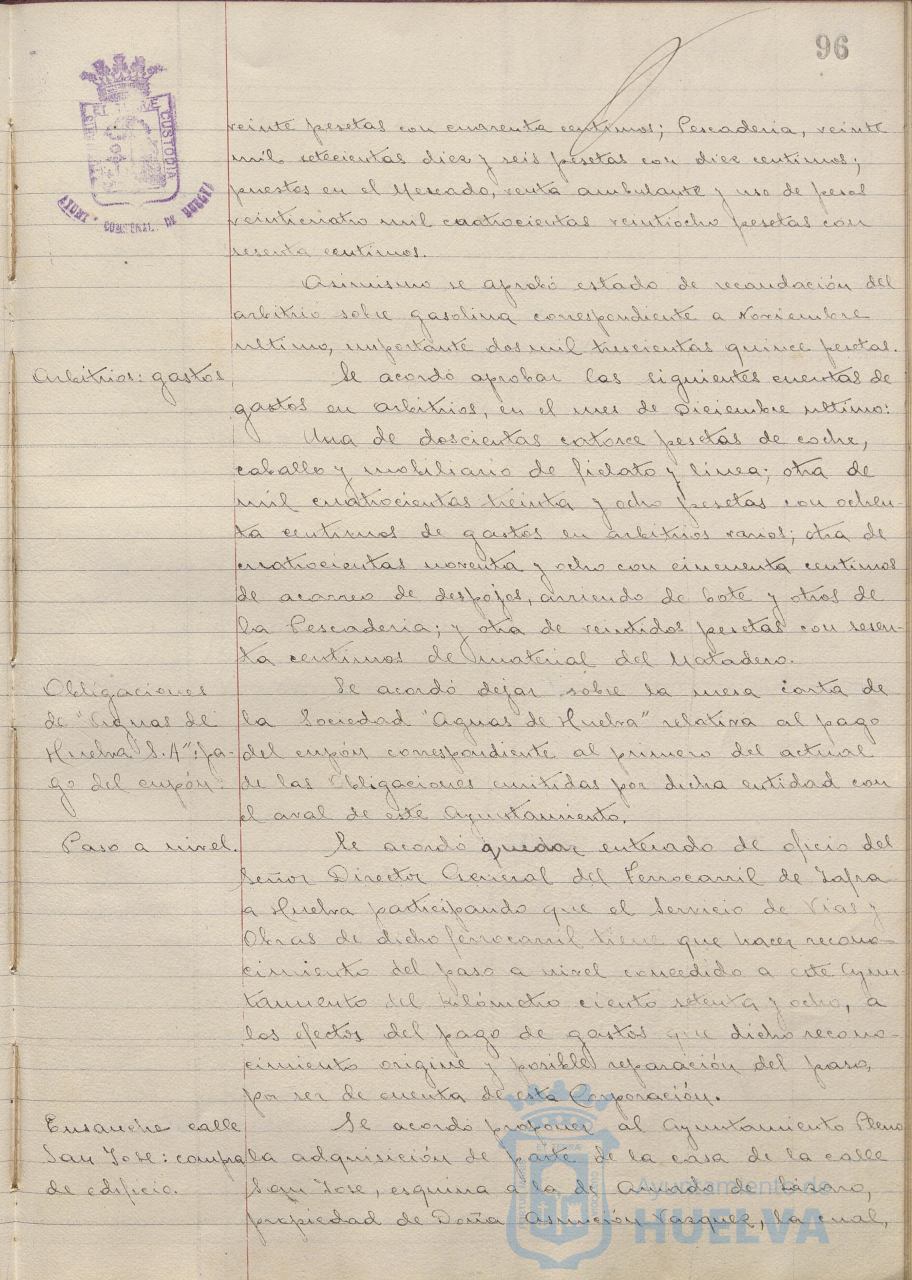 96
CUSTODIA
veinte pesetas con cuarenta centimos; Pescaderia, veinte
mil setecientas diez y seis pesetas con diez centimos;
puestos en el Mercado, venta ambulante y uso de pesos
veinticuatro mil cuatrocientas veintiocho pesetas con
sesenta centimos.
Asimismo se aprobó estado de recaudación del
arbitrio sobre gasolina correspondiente a Noviembre
ultimo, importante dos mil trescientas quince pesetas.
Arbitrios: gastos
Se acordó aprobar las siguientes cuentas de
gastos en arbitrios, en el mes de Diciembre ultimo:
Una de doscientas catorce pesetas de coche,
caballo y mobiliario de fielato y linea; otra de
mil cuatrocientas treinta y ocho pesetas con ochen-
ta centimos de gastos en arbitrios varios; otra de
cuatrocientas noventa y ocho con cincuenta centimos
de acarreo de despojos, arriendo de bote y otros de
la Pescaderia; y otra de veintidos pesetas con sesen-
ta centimos de material del Matadero.
Obligaciones
de "Aguas de
Huelva S.A": pa-
go del cupón.
Se acordó dejar sobre la mesa carta de
la Sociedad "Aguas de Huelva" relativa al pago
del cupón correspondiente al primero del actual
de las Obligaciones emitidas por dicha entidad con
el aval de este Ayuntamiento.
Paso a nivel.
Se acordó quedar enterado de oficio del
Señor Director General del Ferrocarril de Zafra
a Huelva participando que el Servicio de Vias y
Obras de dicho ferrocarril tiene que hacer recono-
cimiento del paso a nivel concedido a este Ayun-
tamiento del kilómetro ciento setenta y ocho, a
los efectos del pago de gastos que dicho recono-
cimiento origine y posible reparación del paso,
por ser de cuenta de esta Corporación.
Ensanche calle
San Jose: compra
de edificio.
Se acordó proponer al Ayuntamiento Pleno
la adquisición de parte de la casa de la calle
San Jose, esquina a la de Amado de Lázaro,
propiedad de Doña Asunción Vazquez, la cual,
Ayuntamiento de
HUELVA